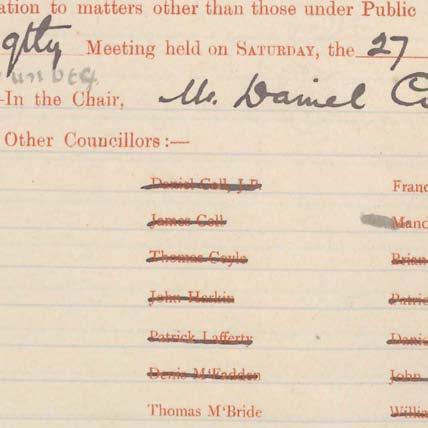 ation to matters other than those under Public
Meeting held on SATURDAY, the 27
-In the Chair, Mr. Daniel
Other Councillors :—
Daniel Coll, J.P. Franc
James Coll Manc
Thomas Coyle Brian
John Harkin Patric
Patrick Lafferty Danie
Denis M‘Fadden John
Thomas M‘Bride Willia